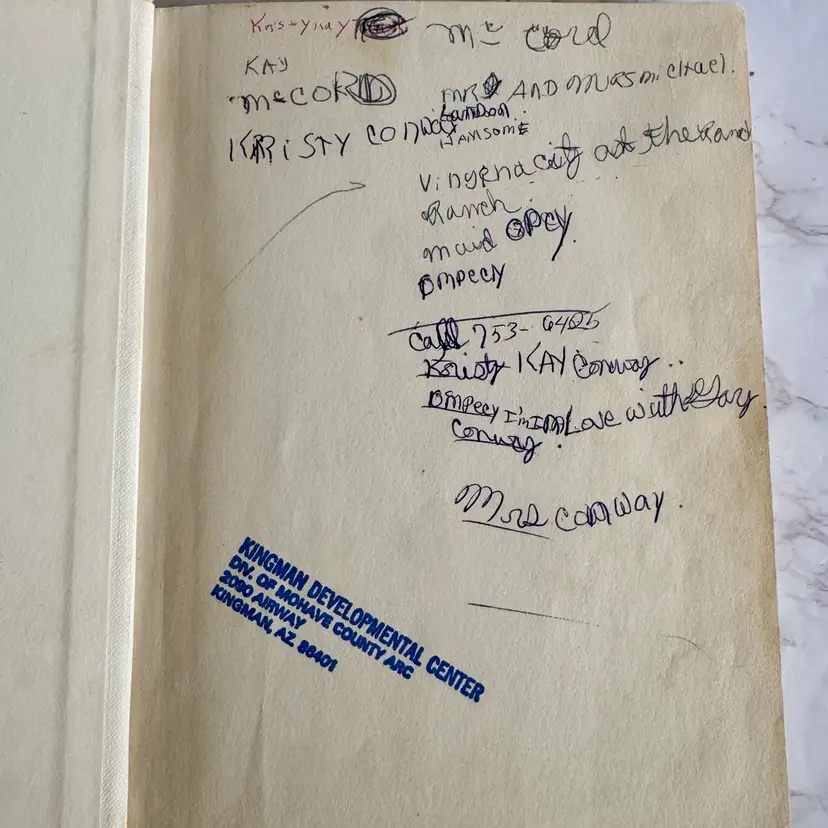 Kristy kay
Mc Cord
KAY
McCORD
MR AND Mrs michael.
Landon
HANSOME
KRiSTY CONWAY
Virginia city at the Rand
Ranch.
maid OPEY.
BMPECY
Call 753-6425
Kristy KAY Conway..
BMPECY I'm IN Love with Gary
Conway.
Mrs conway.
KINGMAN DEVELOPMENTAL CENTER
DIV. OF MOHAVE COUNTY ARC
2090 AIRWAY
KINGMAN, AZ. 86401